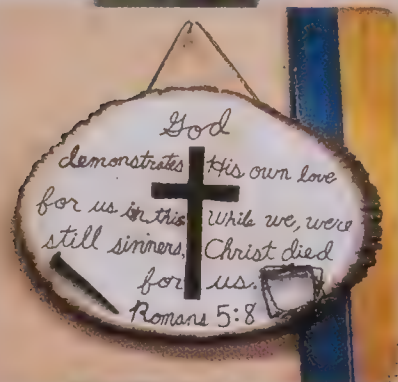 God
demonstrates His own love
for us in this While we, were
still sinners, Christ died
for us.
Romans 5:8